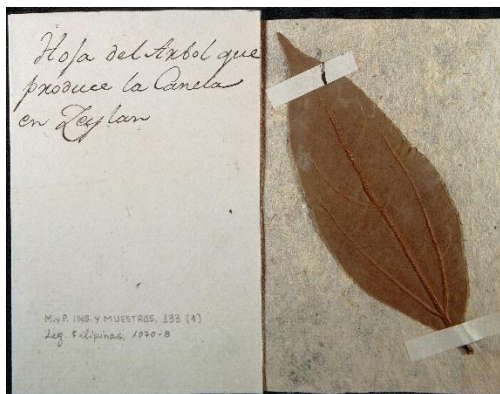 Hoja del Arbol que
produce la Canela
en Zeylan
M. y P. ING. Y MUESTRAS, 133 (A)
Leg. Filipinas, 1070-B